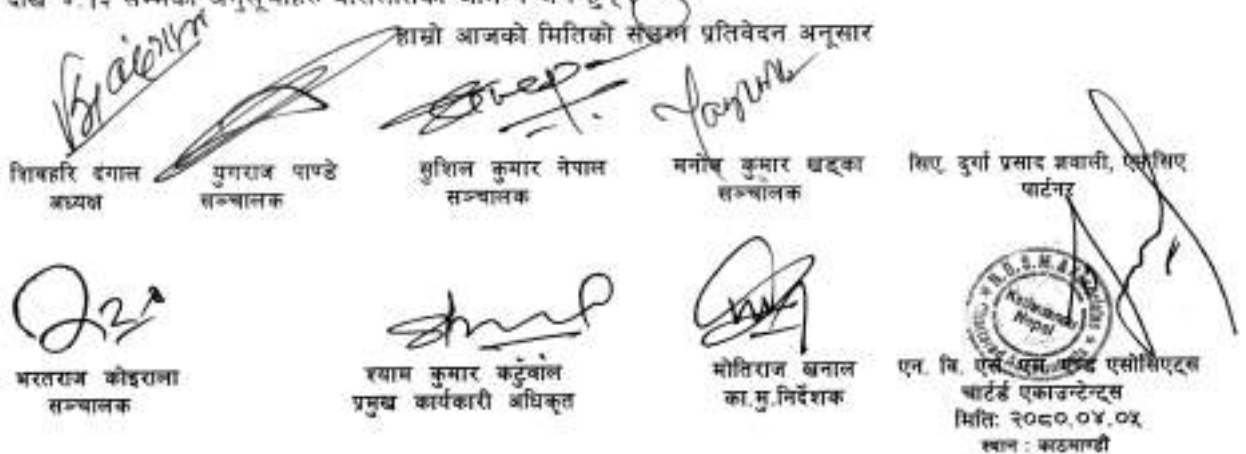 सम्मका अनुसूचीहरु
हाम्रो आजको मितिको संलग्न प्रतिवेदन अनूसार
शिवहरि दंगाल
अध्यक्ष
युगराज पाण्डे
सञ्चालक
सुशिल कुमार नेपाल
सञ्चालक
मनोज कुमार खड्का
सञ्चालक
सिए. दुर्गा प्रसाद ज्ञवाली, एफसिए
पार्टनर
भरतराज कोइराला
सञ्चालक
श्याम कुमार कटुंवाल
प्रमुख कार्यकारी अधिकृत
मोतिराज खनाल
का.मु.निर्देशक
Kathmandu
Nepal
एन. वि. एस. एम. एण्ड एसोसिएट्स
चार्टर्ड एकाउन्टेन्ट्स
मिति: २०८०.०४.०५
स्थान : काठमाण्डौ